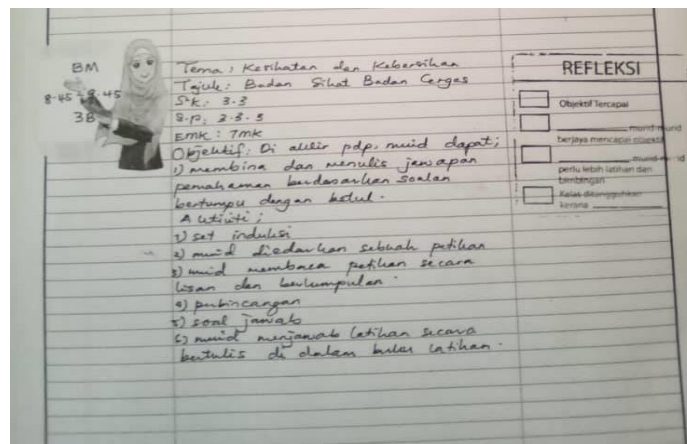 BM
8.45 - 9.45
3B
Tema : Kesihatan dan Kebersihan
Tajuk : Badan Sihat Badan Cergas
S.K : 3.3
S.P : 3.3.3
EMK : TMK
Objektif : Di akhir pdp, muid dapat;
1) membina dan menulis jawapan
pemahaman berdasarkan soalan
bertumpu dengan betul.
Aktiviti ;
1) set induksi
2) murid diedarkan sebuah petikan
3) murid membaca petikan secara
lisan dan berkumpulan.
4) perbincangan
5) soal jawab
6) murid menjawab latihan secara
bertulis di dalam buku latihan.
REFLEKSI
Objektif Tercapai
murid-murid
berjaya mencapai objektif
murid-murid
perlu lebih latihan dan
bimbingan
Kelas ditangguhkan
kerana